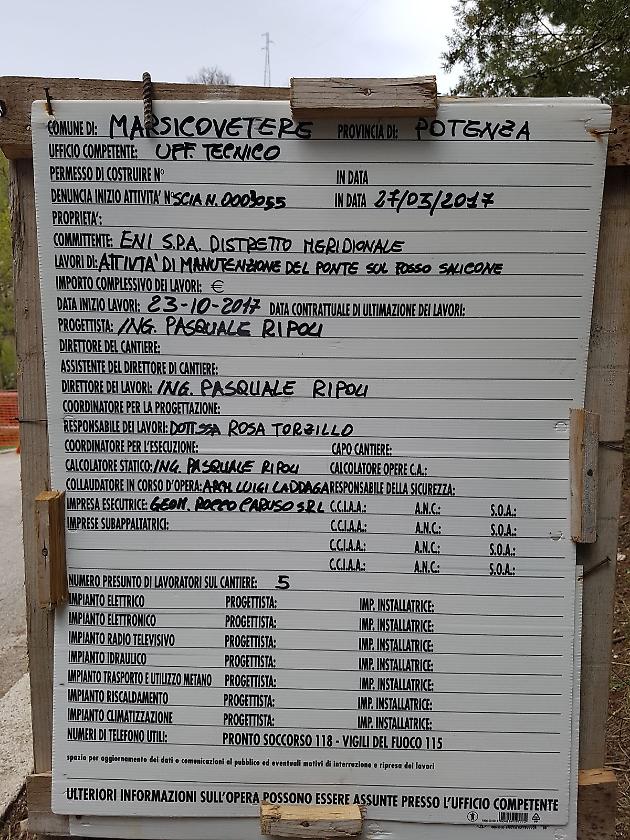 COMUNE DI: MARSICOVETERE PROVINCIA DI: POTENZA
UFFICIO COMPETENTE: UFF. TECNICO
PERMESSO DI COSTRUIRE N° IN DATA
DENUNCIA INIZIO ATTIVITA' N° SCIA N. 0003055 IN DATA 27/03/2017
PROPRIETA':
COMMITTENTE: ENI S.P.A. DISTRETTO MERIDIONALE
LAVORI DI: ATTIVITA' DI MANUTENZIONE DEL PONTE SUL FOSSO SALICONE
IMPORTO COMPLESSIVO DEI LAVORI: €
DATA INIZIO LAVORI: 23-10-2017 DATA CONTRATTUALE DI ULTIMAZIONE DEI LAVORI:
PROGETTISTA: ING. PASQUALE RIPOLI
DIRETTORE DEL CANTIERE:
ASSISTENTE DEL DIRETTORE DI CANTIERE:
DIRETTORE DEI LAVORI: ING. PASQUALE RIPOLI
COORDINATORE PER LA PROGETTAZIONE:
RESPONSABILE DEI LAVORI: DOTT.SSA ROSA TORZILLO
COORDINATORE PER L'ESECUZIONE: CAPO CANTIERE:
CALCOLATORE STATICO: ING. PASQUALE RIPOLI CALCOLATORE OPERE C.A.:
COLLAUDATORE IN CORSO D'OPERA: ARCH. LUIGI LADDAGA RESPONSABILE DELLA SICUREZZA:
IMPRESA ESECUTRICE: GEOM. ROCCO CARUSO SRL C.C.I.A.A.: A.N.C.: S.O.A.:
IMPRESE SUBAPPALTATRICI: C.C.I.A.A.: A.N.C.: S.O.A.:
C.C.I.A.A.: A.N.C.: S.O.A.:
C.C.I.A.A.: A.N.C.: S.O.A.:
NUMERO PRESUNTO DI LAVORATORI SUL CANTIERE: 5
IMPIANTO ELETTRICO PROGETTISTA: IMP. INSTALLATRICE:
IMPIANTO ELETTRONICO PROGETTISTA: IMP. INSTALLATRICE:
IMPIANTO RADIO TELEVISIVO PROGETTISTA: IMP. INSTALLATRICE:
IMPIANTO IDRAULICO PROGETTISTA: IMP. INSTALLATRICE:
IMPIANTO TRASPORTO E UTILIZZO METANO PROGETTISTA: IMP. INSTALLATRICE:
IMPIANTO RISCALDAMENTO PROGETTISTA: IMP. INSTALLATRICE:
IMPIANTO CLIMATIZZAZIONE PROGETTISTA: IMP. INSTALLATRICE:
NUMERI DI TELEFONO UTILI: PRONTO SOCCORSO 118 - VIGILI DEL FUOCO 115
spazio per aggiornamento dei dati e comunicazioni al pubblico ed eventuali motivi di interruzione e ripresa dei lavori
ULTERIORI INFORMAZIONI SULL'OPERA POSSONO ESSERE ASSUNTE PRESSO L'UFFICIO COMPETENTE